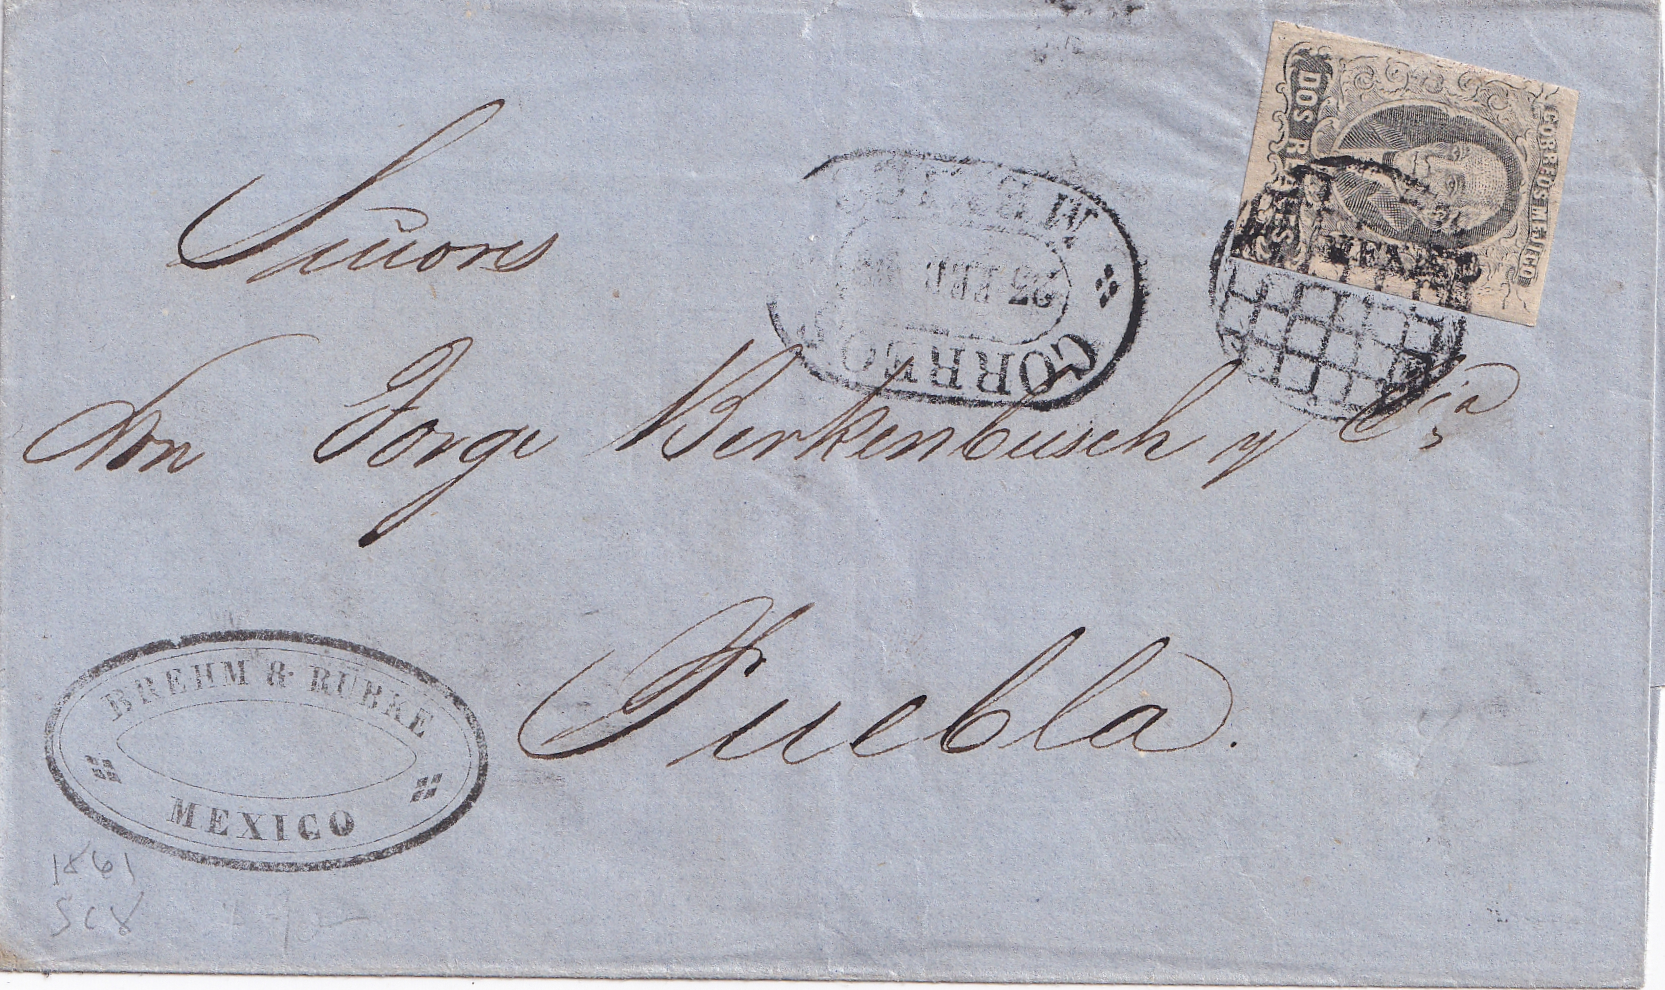 Señores
Don Jorge Berkenbusch y Cia
Puebla.
CORREOS MEJICO
DOS REALES
MEXICO
CORREOS
MEXICO
23 FEB
BREHM & RUBKE
MEXICO
1861
SC8